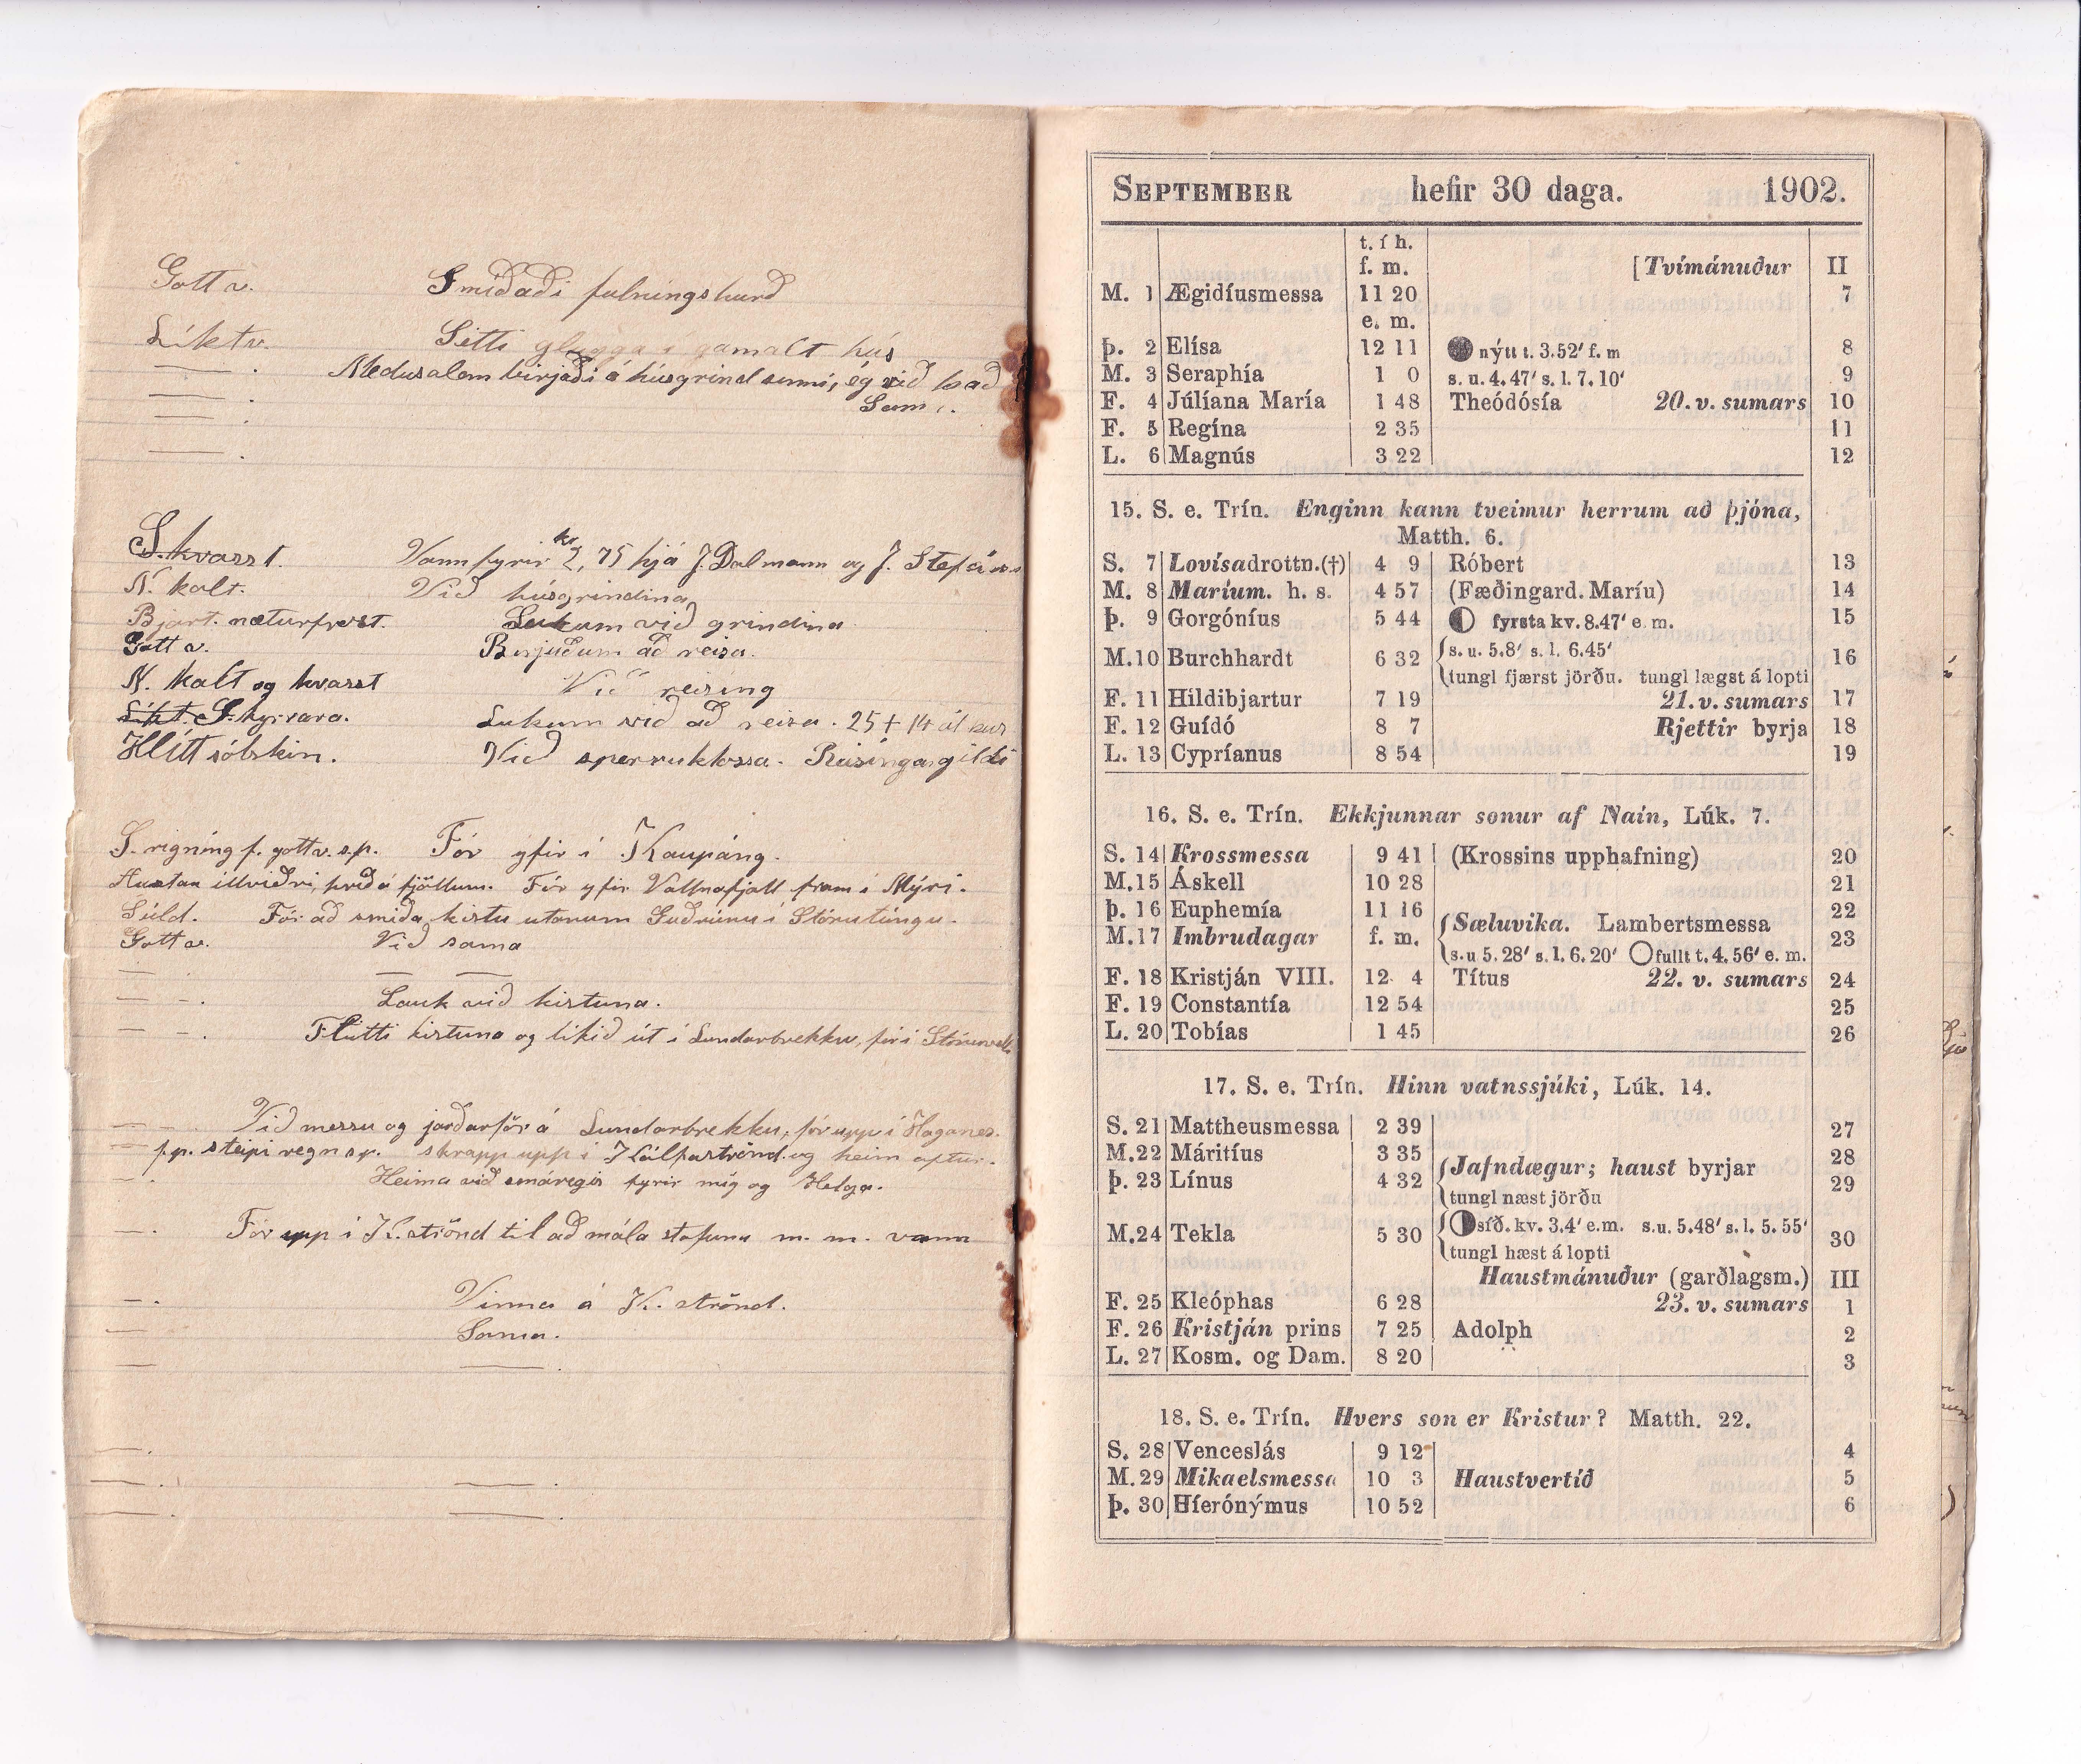 Gott v. Smíðaði fulningshurð
Líkt v. Setti glugga í gamalt hús
— . Medusalem birjaði á húsgrind sinni, ég við það
— : Sama.
— .
S. kvasst. Vann fyrir kr 2,75 hjá J. Dalmann og J. Stefáns
N. kalt. Við húsgrindina
Bjart. næturfrost. Lukum við grindina
Gott v. Birjuðum að reisa.
N. kalt og kvasst Við reising
Líkt. S. hyrvara. Lukum við að reisa. 25 + 14 ál hús
Hlítt sólskin. Við sperruklossa. Reisingargildi
S. rigning f. gott v. s.p. Fór yfir í Kaupáng.
Austan illviðri, hríð á fjöllum. Fór yfir Vallnafjall fram í Mýri.
Súld. Fór að smíða kistu utanum Guðrúnu í Stórutúngu.
Gott v. Við sama
— — — —
— - . Lauk við kistuna.
— - . Flutti kistuna og líkið út í Lundarbrekku, fór í Stóruvelli
— - . Við messu og jarðarför á Lundarbrekku, fór upp í Haganes.
— f.p. steipiregn s.p. skrapp upp í Kálfaströnd og heim aptur.
— . Heima við smávegis fyrir mig og Helga.
— . Fór upp í K. strönd til að mála stofuna m. m. vann
— . Vinna á K. strönd.
— Sama.
— — .
— .
— . — .
— . — .
SEPTEMBER hefir 30 daga. 1902.
t. í h.
f. m. [Tvímánuður II
M. 1 Ægidíusmessa 11 20 7
e. m.
Þ. 2 Elísa 12 11 nýtt t. 3.52' f. m 8
M. 3 Seraphía 1 0 s. u. 4.47' s. l. 7.10' 9
F. 4 Júlíana María 1 48 Theódósía 20. v. sumars 10
F. 5 Regína 2 35 11
L. 6 Magnús 3 22 12
15. S. e. Trín. Enginn kann tveimur herrum að þjóna,
Matth. 6.
S. 7 Lovísa drottn.(†) 4 9 Róbert 13
M. 8 Maríum. h. s. 4 57 (Fæðingard. Maríu) 14
Þ. 9 Gorgóníus 5 44 fyrsta kv. 8.47' e. m. 15
M. 10 Burchhardt 6 32 s. u. 5.8' s. l. 6.45' 16
tungl fjærst jörðu. tungl lægst á lopti
F. 11 Hildibjartur 7 19 21. v. sumars 17
F. 12 Guídó 8 7 Rjettir byrja 18
L. 13 Cypríanus 8 54 19
16. S. e. Trín. Ekkjunnar sonur af Nain, Lúk. 7.
S. 14 Krossmessa 9 41 (Krossins upphafning) 20
M. 15 Áskell 10 28 21
Þ. 16 Euphemía 11 16 22
Sæluvika. Lambertsmessa
M. 17 Imbrudagar f. m. 23
s. u 5.28' s. l. 6.20' fullt t. 4.56' e. m.
F. 18 Kristján VIII. 12 4 Títus 22. v. sumars 24
F. 19 Constantía 12 54 25
L. 20 Tobías 1 45 26
17. S. e. Trín. Hinn vatnssjúki, Lúk. 14.
S. 21 Mattheusmessa 2 39 27
M. 22 Máritíus 3 35 28
Jafndægur; haust byrjar
Þ. 23 Línus 4 32 29
tungl næst jörðu
M. 24 Tekla 5 30 síð. kv. 3.4' e.m. s.u. 5.48' s. l. 5.55' 30
tungl hæst á lopti
Haustmánuður (garðlagsm.) III
F. 25 Kleóphas 6 28 23. v. sumars 1
F. 26 Kristján prins 7 25 Adolph 2
L. 27 Kosm. og Dam. 8 20 3
18. S. e. Trín. Hvers son er Kristur? Matth. 22.
S. 28 Venceslás 9 12 4
M. 29 Mikaelsmessa 10 3 Haustvertíð 5
Þ. 30 Híerónýmus 10 52 6